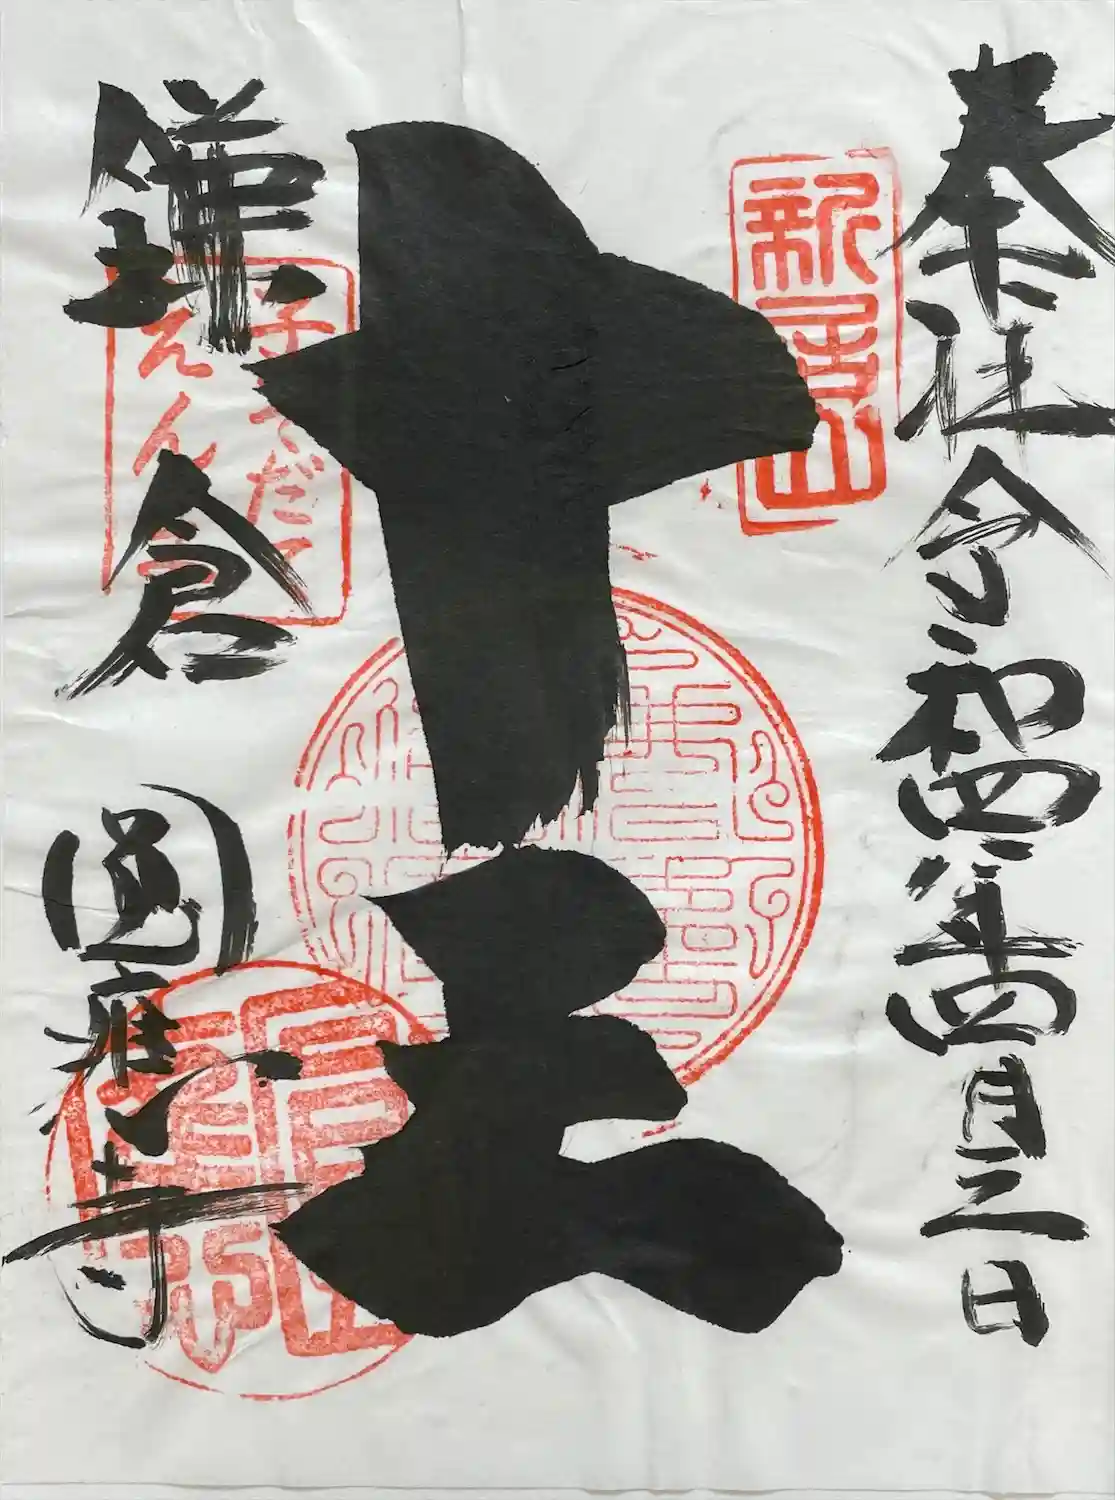 奉拝 令和四年四月三日
新居山
十王
子そだて
えんま
鎌倉 圓應寺